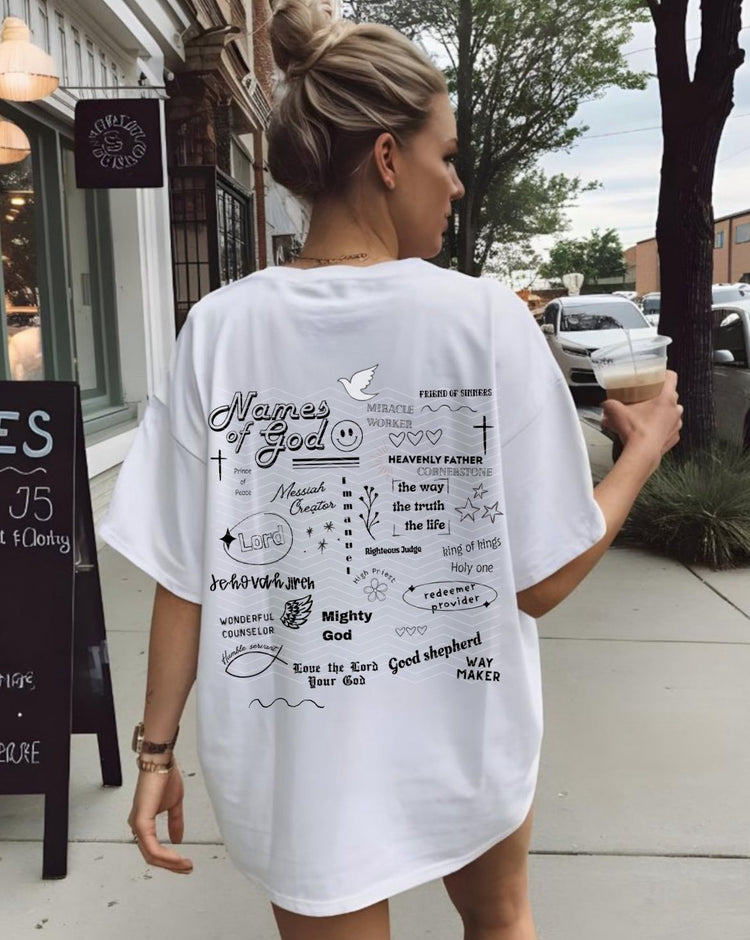 Names
of God
FRIEND OF SINNERS
MIRACLE
WORKER
HEAVENLY FATHER
CORNERSTONE
Prince
of
Peace
Messiah
Creator
immanuel
the way
the truth
the life
Lord
Righteous Judge
king of kings
Holy one
Jehovah Jireh
High Priest
redeemer
provider
WONDERFUL
COUNSELOR
Mighty
God
Humble servant
Love the Lord
Your God
Good shepherd
WAY
MAKER
ES
J5